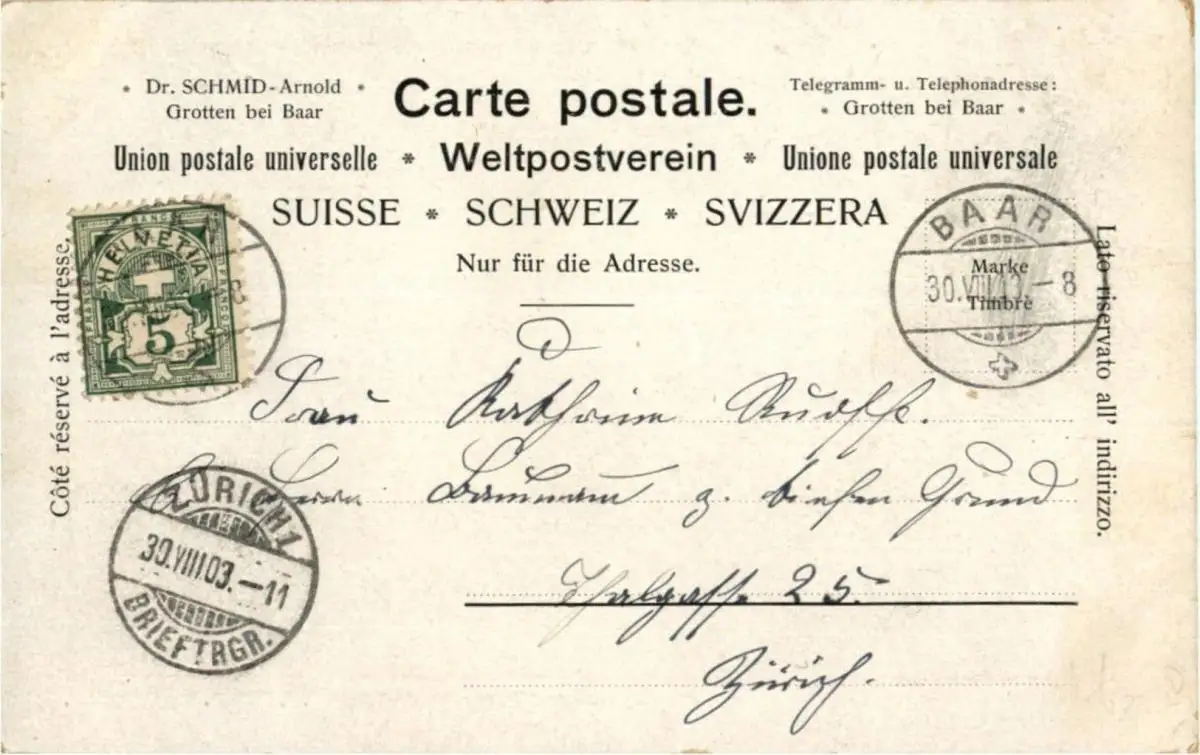 • Dr. SCHMID-Arnold •
Grotten bei Baar
Carte postale.
Telegramm- u. Telephonadresse:
• Grotten bei Baar •
Union postale universelle * Weltpostverein * Unione postale universale
SUISSE * SCHWEIZ * SVIZZERA
Nur für die Adresse.
Côté réservé à l'adresse.
Lato riservato all' indirizzo.
HELVETIA
FRANCO
5
BAAR
Marke
30.VIII.03.-8
Timbre
Frau Kathrine
Herrn Baumann z.
Grund
Thalgasse 25.
Zürich.
ZÜRICH 1
30.VIII.03.-11
BRIEFTRGR.